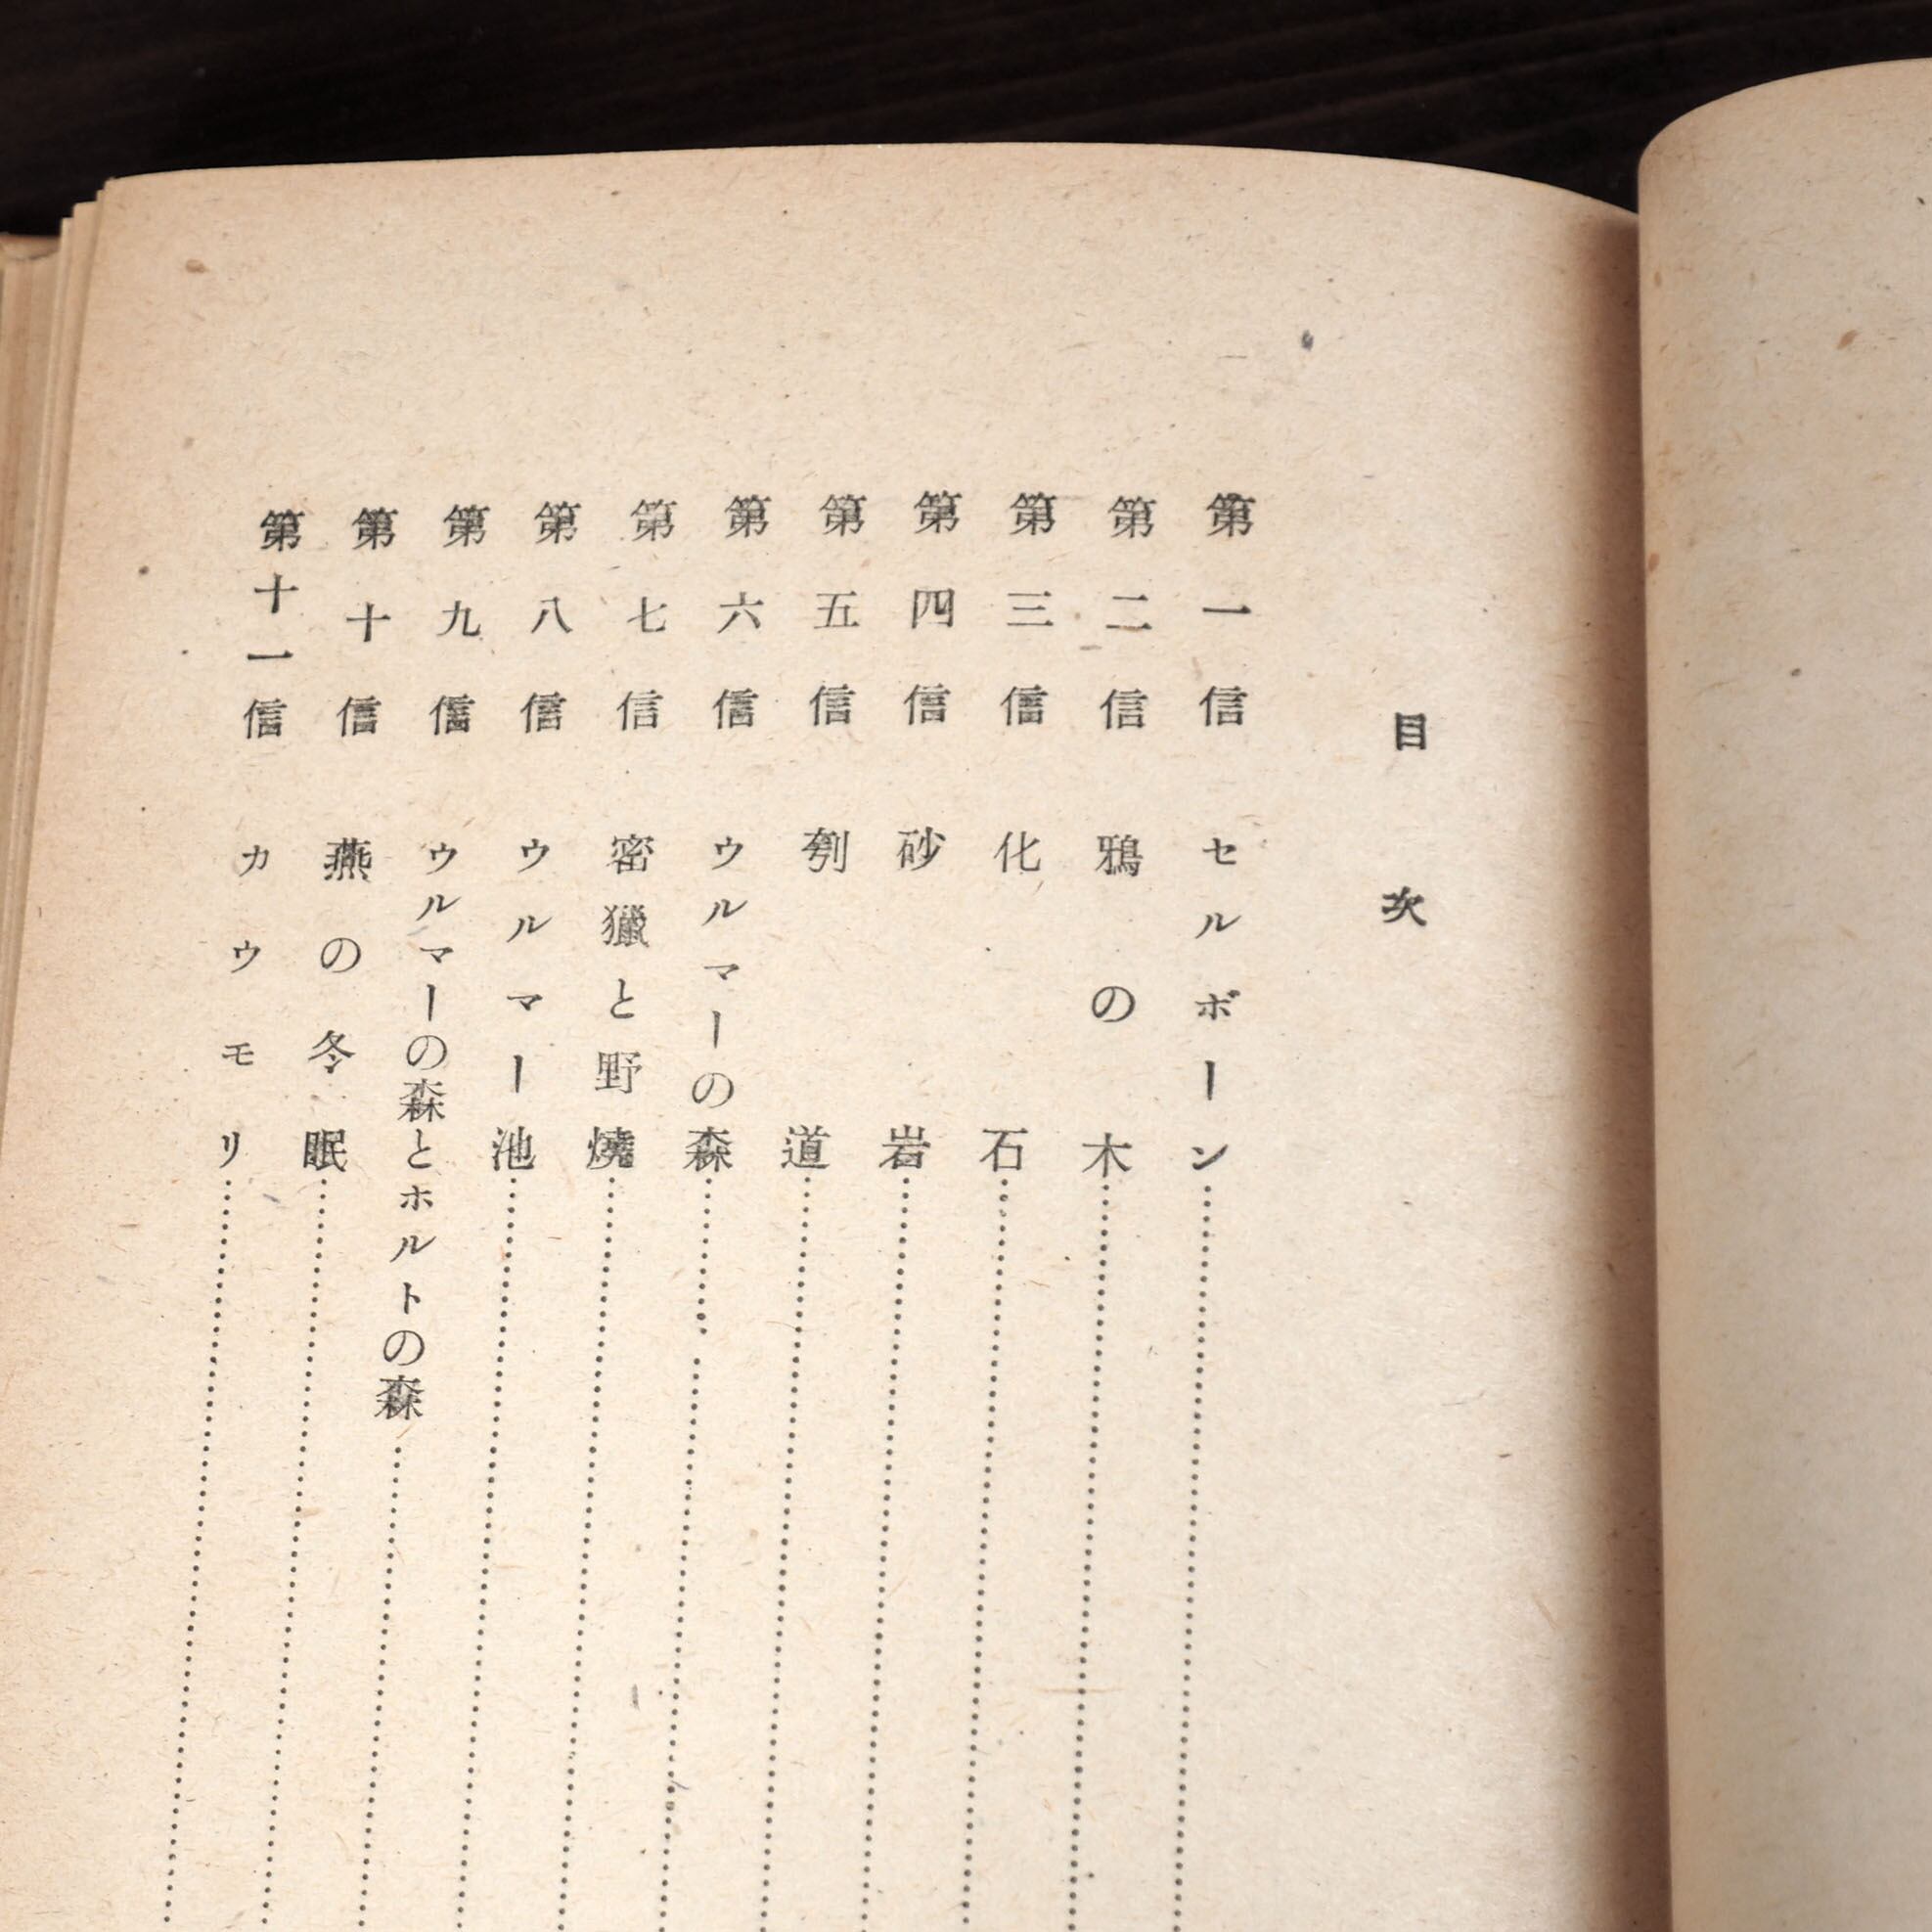 目次
第一信 セルボーン
第二信 鴉の木
第三信 化石
第四信 砂岩
第五信 刳道
第六信 ウルマーの森
第七信 密獵と野燒
第八信 ウルマー池
第九信 ウルマーの森とホルトの森
第十信 燕の冬眠
第十一信 カウモリ